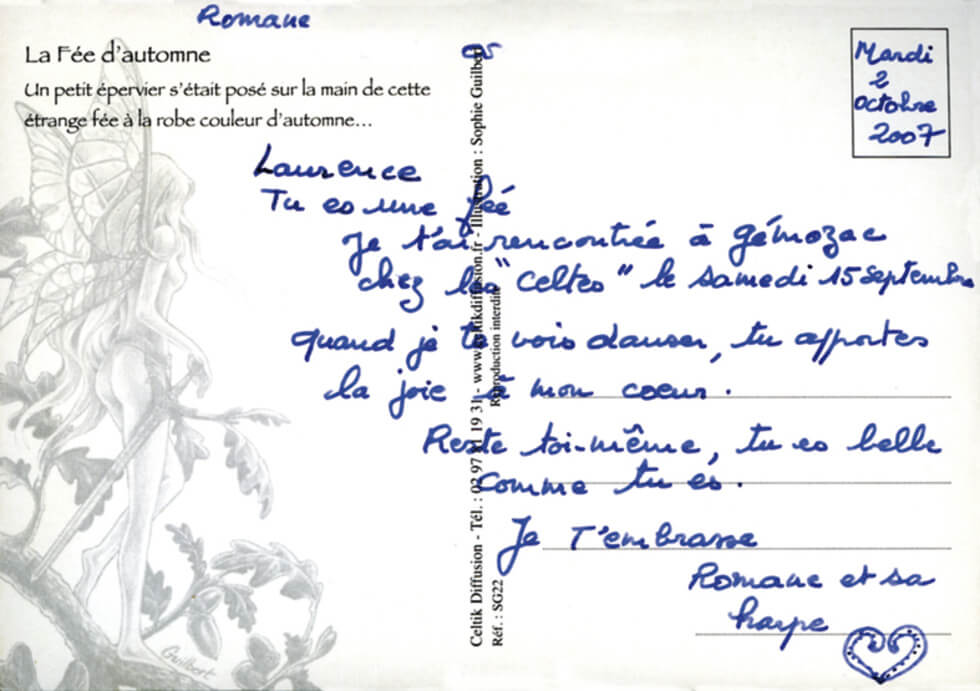 Romane
La Fée d'automne
Un petit épervier s'était posé sur la main de cette
étrange fée à la robe couleur d'automne...
Mardi
2
octobre
2007
Laurence
Tu es une fée
Je t'ai rencontrée à gémozac
chez les "Celtes" le samedi 15 septembre
quand je te vois danser, tu apportes
la joie à mon coeur.
Reste toi-même, tu es belle
comme tu es.
Je T'embrasse
Romane et sa
harpe
Celtik Diffusion - Tél. : 02 97 19 31 - www.celtikdiffusion.fr - Illustration : Sophie Guilbert
Réf. : SG22
Reproduction interdite
Guilbert